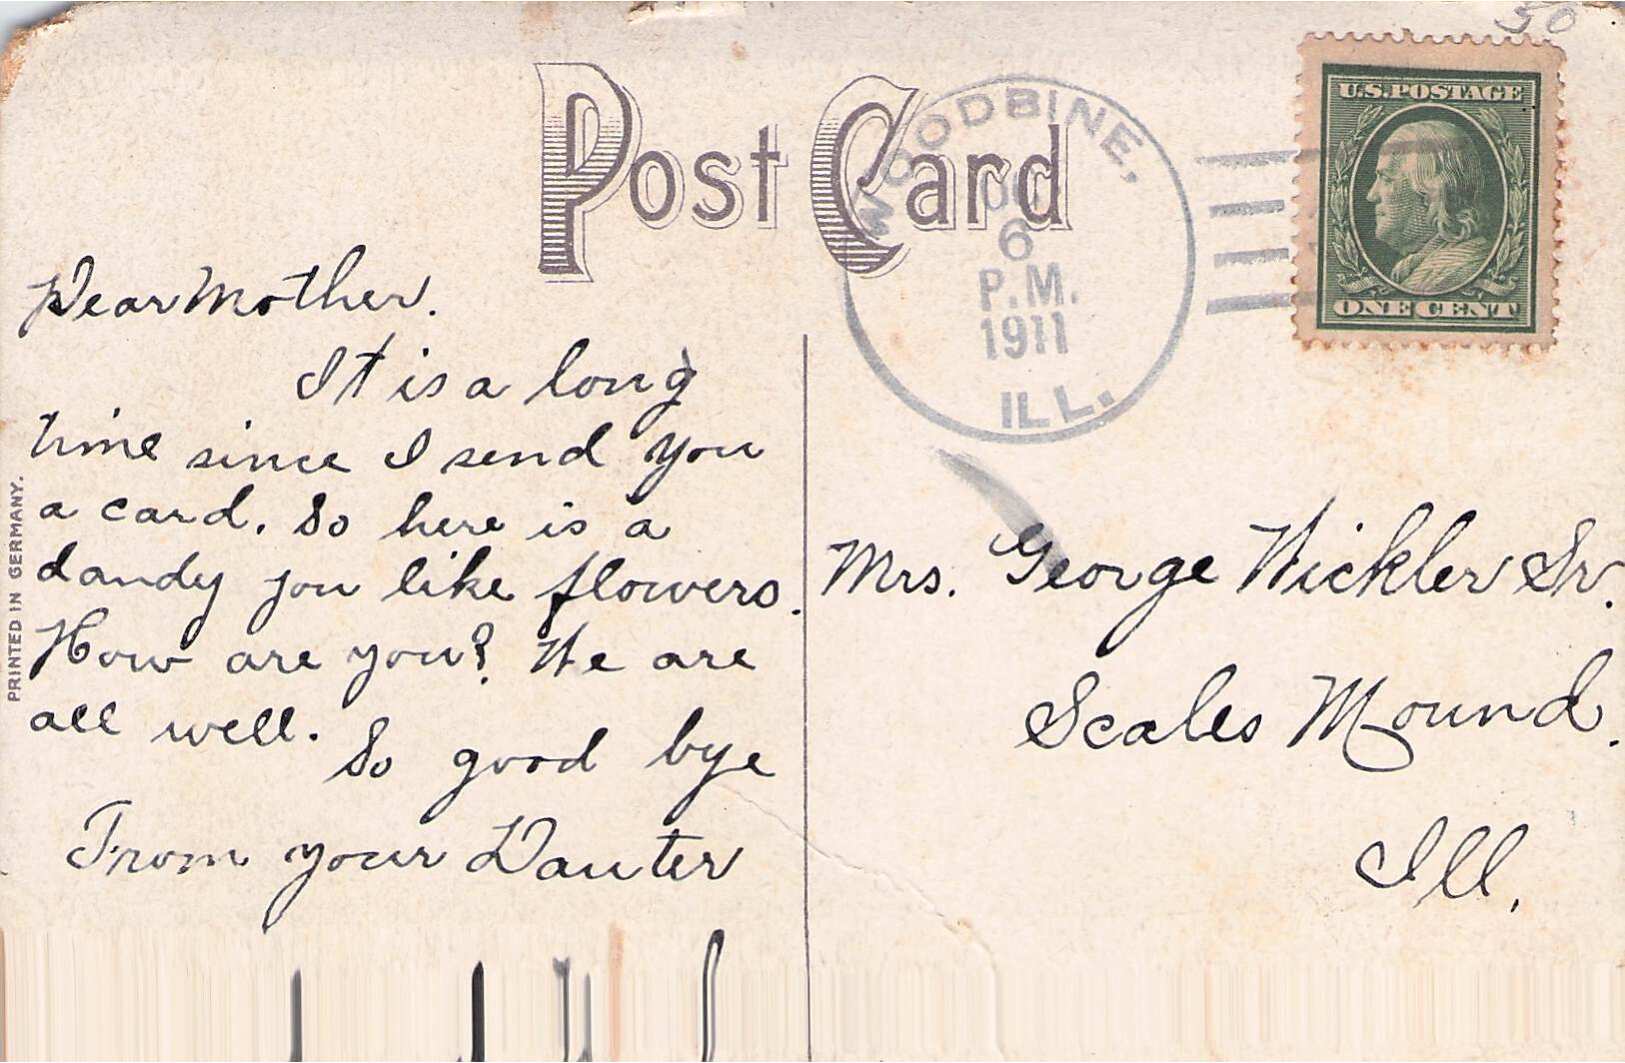 50
Post Card
U.S. POSTAGE
ONE CENT
WOODBINE,
6
P.M.
1911
ILL.
Dear Mother.
It is a long
time since I send you
a card. So here is a
dandy you like flowers.
How are you? We are
all well.
So good bye
From your Dauter
Mrs. George Wickler Sr.
Scales Mound.
Ill.
PRINTED IN GERMANY.